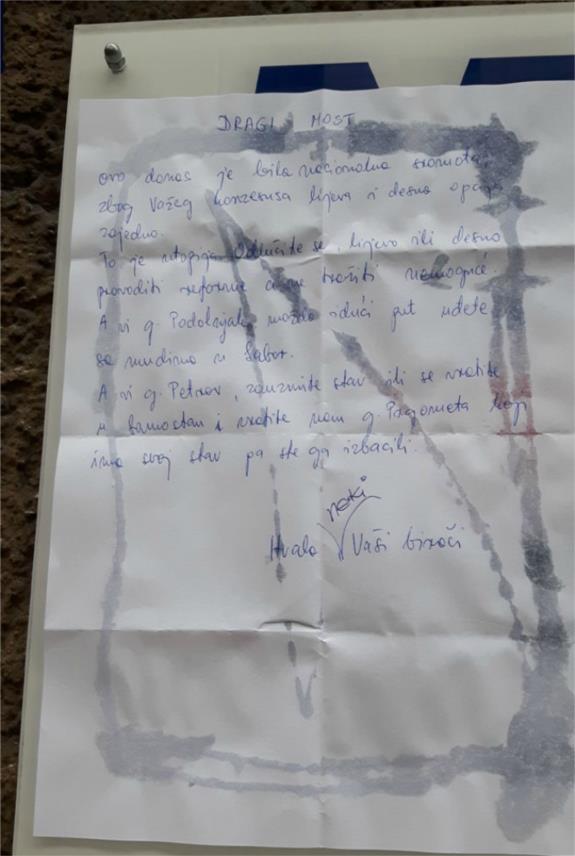 DRAGI MOST
ovo danas je bila nacionalna sramota,
zbog Vašeg konzensusa lijeva i desna opcija
zajedno.
To je utopija. Odlučite se, lijevo ili desno
provoditi reforme a ne tražiti nemoguće.
A vi g. Podolnjak možda idući put uđete
sa mudima u Sabor.
A vi g. Petrov, zauzmite stav ili se vratite
u samostan i vratite nam g. Prgometa koji
ima svoj stav pa ste ga izbacili.
neki
Hvala Vaši birači